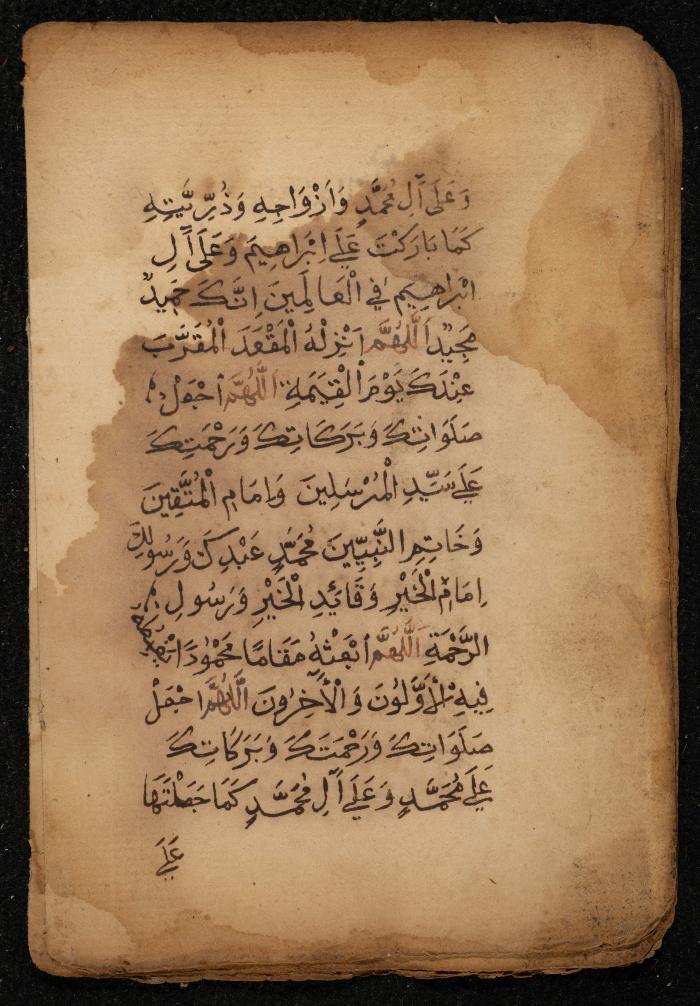 وَعَلَى آلِ مُحَمَّدٍ وَاَزْوَاجِهِ وَذُرِّيَّتِهِ
كَمَا بَارَكْتَ عَلَى اِبْرَاهِيمَ وَعَلَى آلِ
اِبْرَاهِيمَ فِي الْعَالَمِينَ اِنَّكَ حَمِيدٌ
مَجِيدٌ اَللّٰهُمَّ اَنْزِلْهُ الْمَقْعَدَ الْمُقَرَّبَ
عِنْدَكَ يَوْمَ الْقِيَمَةِ اَللّٰهُمَّ اجْعَلْ
صَلَوَاتِكَ وَبَرَكَاتِكَ وَرَحْمَتِكَ
عَلَى سَيِّدِ الْمُرْسَلِينَ وَاِمَامِ الْمُتَّقِينَ
وَخَاتِمِ النَّبِيِّينَ مُحَمَّدٍ عَبْدِكَ وَرَسُولِكَ
اِمَامِ الْخَيْرِ وَقَائِدِ الْخَيْرِ وَرَسُولِ
الرَّحْمَةِ اَللّٰهُمَّ ابْعَثْهُ مَقَامًا مَحْمُودًا
فِيهِ الْأَوَّلُونَ وَالْآخِرُونَ اَللّٰهُمَّ اجْعَلْ
صَلَوَاتِكَ وَرَحْمَتَكَ وَبَرَكَاتِكَ
عَلَى مُحَمَّدٍ وَعَلَى آلِ مُحَمَّدٍ كَمَا جَعَلْتَهَا
عَلَى